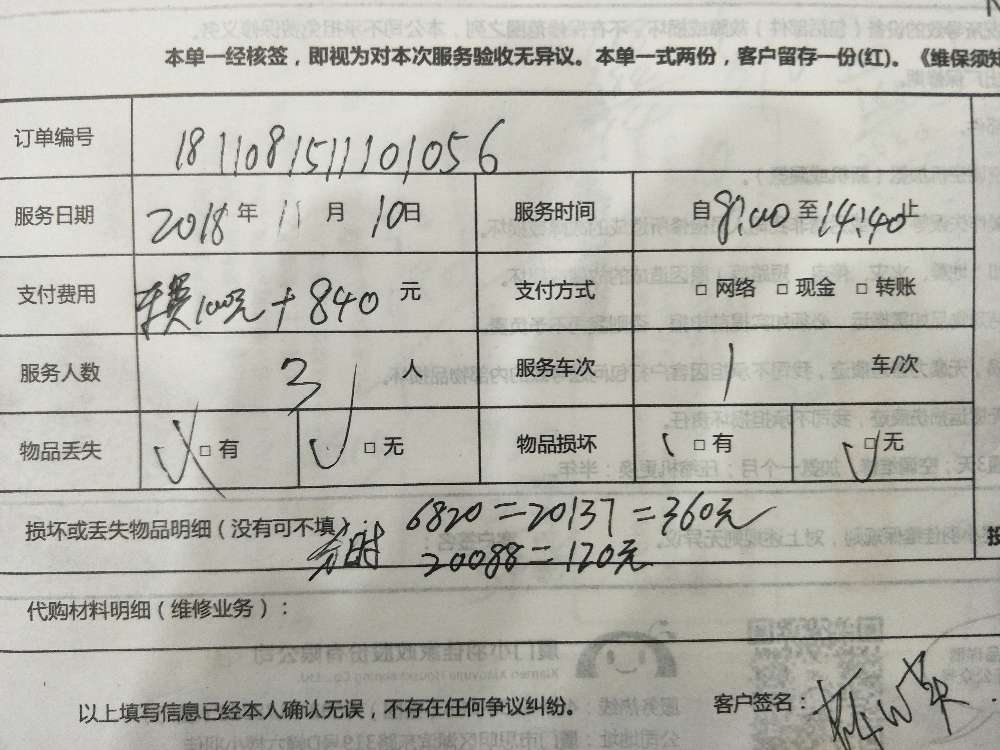 本单一经核签，即视为对本次服务验收无异议。本单一式两份，客户留存一份(红)。《维保须知
订单编号 181108151110​1056
服务日期 2018 年 11 月 10日 服务时间 自 8:00 至 14:40 止
支付费用 车费100元+840 元 支付方式 □ 网络 □ 现金 □ 转账
服务人数 3 人 服务车次 1 车/次
物品丢失 □ 有 □ 无 物品损坏 □ 有 □ 无
损坏或丢失物品明细（没有可不填）： 6820=20137=360元
20088=120元
代购材料明细（维修业务）：
以上填写信息已经本人确认无误，不存在任何争议纠纷。 客户签名：